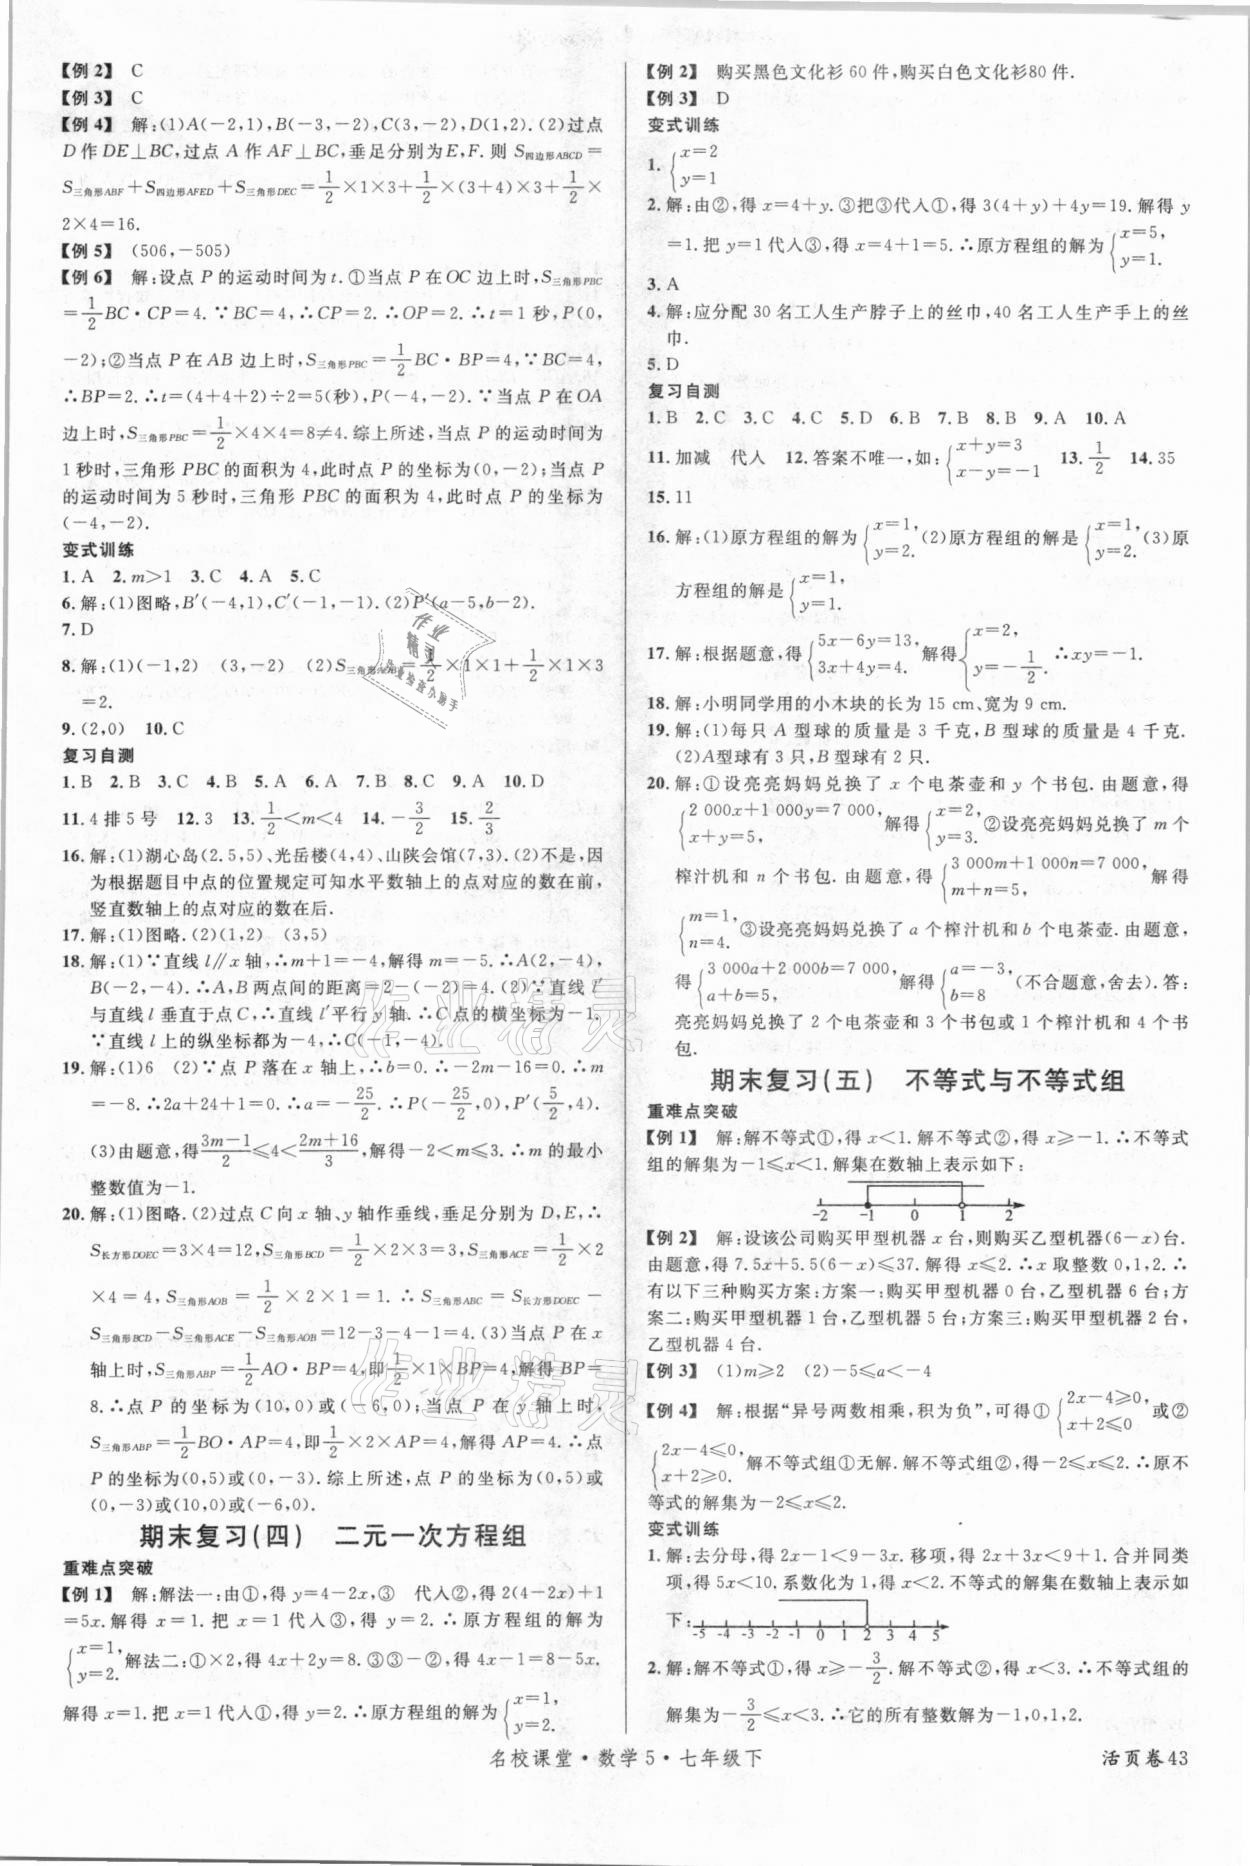 【例2】 C
【例3】 C
【例4】 解:(1)A(-2,1),B(-3,-2),C(3,-2),D(1,2).(2)过点
D作DE⊥BC,过点A作AF⊥BC,垂足分别为E,F.则S四边形ABCD=
S三角形ABF+S四边形AFED+S三角形DEC=1/2×1×3+1/2×(3+4)×3+1/2×
2×4=16.
【例5】 (506,-505)
【例6】 解:设点P的运动时间为t.①当点P在OC边上时,S三角形PBC
=1/2BC·CP=4.∵BC=4,∴CP=2.∴OP=2.∴t=1秒,P(0,
-2);②当点P在AB边上时,S三角形PBC=1/2BC·BP=4,∵BC=4,
∴BP=2.∴t=(4+4+2)÷2=5(秒),P(-4,-2).∵当点P在OA
边上时,S三角形PBC=1/2×4×4=8≠4.综上所述,当点P的运动时间为
1秒时,三角形PBC的面积为4,此时点P的坐标为(0,-2);当点P
的运动时间为5秒时,三角形PBC的面积为4,此时点P的坐标为
(-4,-2).
变式训练
1.A 2.m>1 3.C 4.A 5.C
6.解:(1)图略,B′(-4,1),C′(-1,-1).(2)P′(a-5,b-2).
7.D
8.解:(1)(-1,2) (3,-2) (2)S三角形AOB=1/2×1×1+1/2×1×3
=2.
9.(2,0) 10.C
复习自测
1.B 2.B 3.C 4.B 5.A 6.A 7.B 8.C 9.A 10.D
11.4排5号 12.3 13.1/2<m<4 14.-3/2 15.2/3
16.解:(1)湖心岛(2.5,5)、光岳楼(4,4)、山陕会馆(7,3).(2)不是,因
为根据题目中点的位置规定可知水平数轴上的点对应的数在前,
竖直数轴上的点对应的数在后.
17.解:(1)图略.(2)(1,2) (3,5)
18.解:(1)∵直线l∥x轴,∴m+1=-4,解得m=-5.∴A(2,-4),
B(-2,-4).∴A,B两点间的距离=2-(-2)=4.(2)∵直线l′
与直线l垂直于点C,∴直线l′平行y轴.∴C点的横坐标为-1.
∵直线l上的纵坐标都为-4,∴C(-1,-4).
19.解:(1)6 (2)∵点P落在x轴上,∴b=0.∴-2m-16=0.∴m
=-8.∴2a+24+1=0.∴a=-25/2.∴P(-25/2,0),P′(5/2,4).
(3)由题意,得3m-1/2≤4<2m+16/3,解得-2<m≤3.∴m的最小
整数值为-1.
20.解:(1)图略.(2)过点C向x轴、y轴作垂线,垂足分别为D,E,∴
S长方形DOEC=3×4=12,S三角形BCD=1/2×2×3=3,S三角形ACE=1/2×2
×4=4,S三角形AOB=1/2×2×1=1.∴S三角形ABC=S长方形DOEC-
S三角形BCD-S三角形ACE-S三角形AOB=12-3-4-1=4.(3)当点P在x
轴上时,S三角形ABP=1/2AO·BP=4,即1/2×1×BP=4,解得BP=
8.∴点P的坐标为(10,0)或(-6,0);当点P在y轴上时,
S三角形ABP=1/2BO·AP=4,即1/2×2×AP=4,解得AP=4.∴点
P的坐标为(0,5)或(0,-3).综上所述,点P的坐标为(0,5)或
(0,-3)或(10,0)或(-6,0).
期末复习(四) 二元一次方程组
重难点突破
【例1】 解:解法一:由①,得y=4-2x,③ 代入②,得2(4-2x)+1
=5x.解得x=1.把x=1代入③,得y=2.∴原方程组的解为
{x=1, y=2. 解法二:①×2,得4x+2y=8.③③-②,得4x-1=8-5x.
解得x=1.把x=1代入①,得y=2.∴原方程组的解为{x=1, y=2.
【例2】 购买黑色文化衫60件,购买白色文化衫80件.
【例3】 D
变式训练
1.{x=2 y=1
2.解:由②,得x=4+y.③把③代入①,得3(4+y)+4y=19.解得y
=1.把y=1代入③,得x=4+1=5.∴原方程组的解为{x=5, y=1.
3.A
4.解:应分配30名工人生产脖子上的丝巾,40名工人生产手上的丝
巾.
5.D
复习自测
1.B 2.C 3.C 4.C 5.D 6.B 7.B 8.B 9.A 10.A
11.加减 代入 12.答案不唯一,如:{x+y=3 x-y=-1 13.1/2 14.35
15.11
16.解:(1)原方程组的解为{x=1, y=2.(2)原方程组的解是{x=1, y=2.(3)原
方程组的解是{x=1, y=1.
17.解:根据题意,得{5x-6y=13, 3x+4y=4. 解得{x=2, y=-1/2. ∴xy=-1.
18.解:小明同学用的小木块的长为15 cm、宽为9 cm.
19.解:(1)每只A型球的质量是3千克,B型球的质量是4千克.
(2)A型球有3只,B型球有2只.
20.解:①设亮亮妈妈兑换了x个电茶壶和y个书包.由题意,得
{2 000x+1 000y=7 000, x+y=5, 解得{x=2, y=3.②设亮亮妈妈兑换了m个
榨汁机和n个书包.由题意,得{3 000m+1 000n=7 000, m+n=5, 解得
{m=1, n=4.③设亮亮妈妈兑换了a个榨汁机和b个电茶壶.由题意,
得{3 000a+2 000b=7 000, a+b=5, 解得{a=-3, b=8 (不合题意,舍去).答:
亮亮妈妈兑换了2个电茶壶和3个书包或1个榨汁机和4个书
包.
期末复习(五) 不等式与不等式组
重难点突破
【例1】 解:解不等式①,得x<1.解不等式②,得x≥-1.∴不等式
组的解集为-1≤x<1.解集在数轴上表示如下:
-2 -1 0 1 2
【例2】 解:设该公司购买甲型机器x台,则购买乙型机器(6-x)台.
由题意,得7.5x+5.5(6-x)≤37.解得x≤2.∴x取整数0,1,2.∴
有以下三种购买方案:方案一:购买甲型机器0台,乙型机器6台;方
案二:购买甲型机器1台,乙型机器5台;方案三:购买甲型机器2台,
乙型机器4台.
【例3】 (1)m≥2 (2)-5≤a<-4
【例4】 解:根据“异号两数相乘,积为负”,可得①{2x-4≥0, x+2≤0 或②
{2x-4≤0, x+2≥0. 解不等式组①无解.解不等式组②,得-2≤x≤2.∴原不
等式的解集为-2≤x≤2.
变式训练
1.解:去分母,得2x-1<9-3x.移项,得2x+3x<9+1.合并同类
项,得5x<10.系数化为1,得x<2.不等式的解集在数轴上表示如
下: -5 -4 -3 -2 -1 0 1 2 3 4 5
2.解:解不等式①,得x≥-3/2.解不等式②,得x<3.∴不等式组的
解集为-3/2≤x<3.∴它的所有整数解为-1,0,1,2.
名校课堂·数学5·七年级下
活页卷43
作业精灵
作业检查小助手
作业精灵
作业精灵